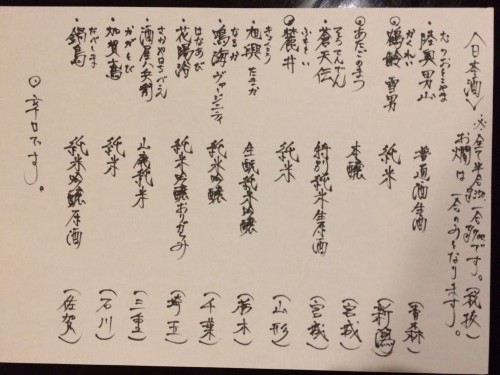 〈日本酒〉 ※全て半合 一合 です。(税抜)
お燗は一合のみとなります。
むつおとこやま
・陸奥男山 普通酒生酒 (青森)
かくれい
・鶴齢 雪男 純米 (新潟)
◎あたごのまつ 本醸 (宮城)
そうてんでん
・蒼天伝 特別純米生原酒 (宮城)
ふもとい
◎麓井 純米 (山形)
きょくこう
・旭興 たまか 生酛純米吟醸 (栃木)
なるか
・鳴海 ヴァージニティ 純米吟醸 (千葉)
はなあび
・花陽浴 純米吟醸おりがらみ (埼玉)
さかやはちべえ
・酒屋八兵衛 山廃純米 (三重)
かがとび
・加賀鳶 純米 (石川)
なべしま
・鍋島 純米吟醸原酒 (佐賀)
◎辛口です。